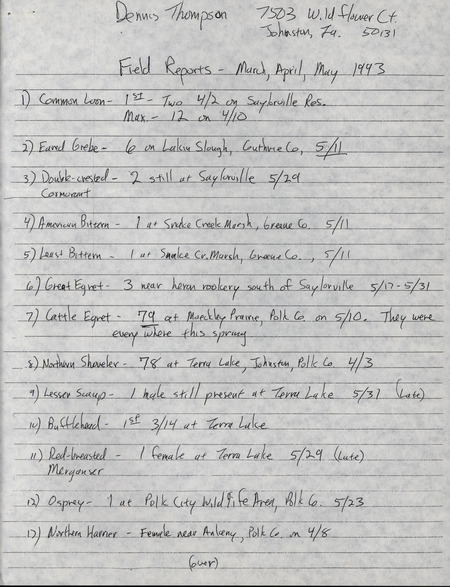 Dennis Thompson 7503 Wildflower Ct.
Johnston, Ia. 50131
Field Reports - March, April, May 1993
1) Common Loon - 1st - Two 4/2 on Saylorville Res.
Max. - 12 on 4/10
2) Eared Grebe - 6 on Lakin Slough, Guthrie Co, 5/11
3) Double-crested - 2 still at Saylorville 5/29
Cormorant
4) American Bittern - 1 at Snake Creek Marsh, Greene Co. 5/11
5) Least Bittern - 1 at Snake Cr. Marsh, Greene Co., 5/11
6) Great Egret - 3 near heron rookery south of Saylorville 5/17-5/31
7) Cattle Egret - 79 at Moeckley Prairie, Polk Co. on 5/10. They were
everywhere this spring
8) Northern Shoveler - 78 at Terra Lake, Johnston, Polk Co 4/3
9) Lesser Scaup - 1 male still present at Terra Lake 5/31 (Late)
10) Bufflehead - 1st 3/14 at Terra Lake
11) Red-breasted - 1 female at Terra Lake 5/29 (Late)
Merganser
12) Osprey - 1 at Polk City Wildlife Area, Polk Co. 5/23
13) Northern Harrier - Female near Ankeny, Polk Co. on 4/8
(over)